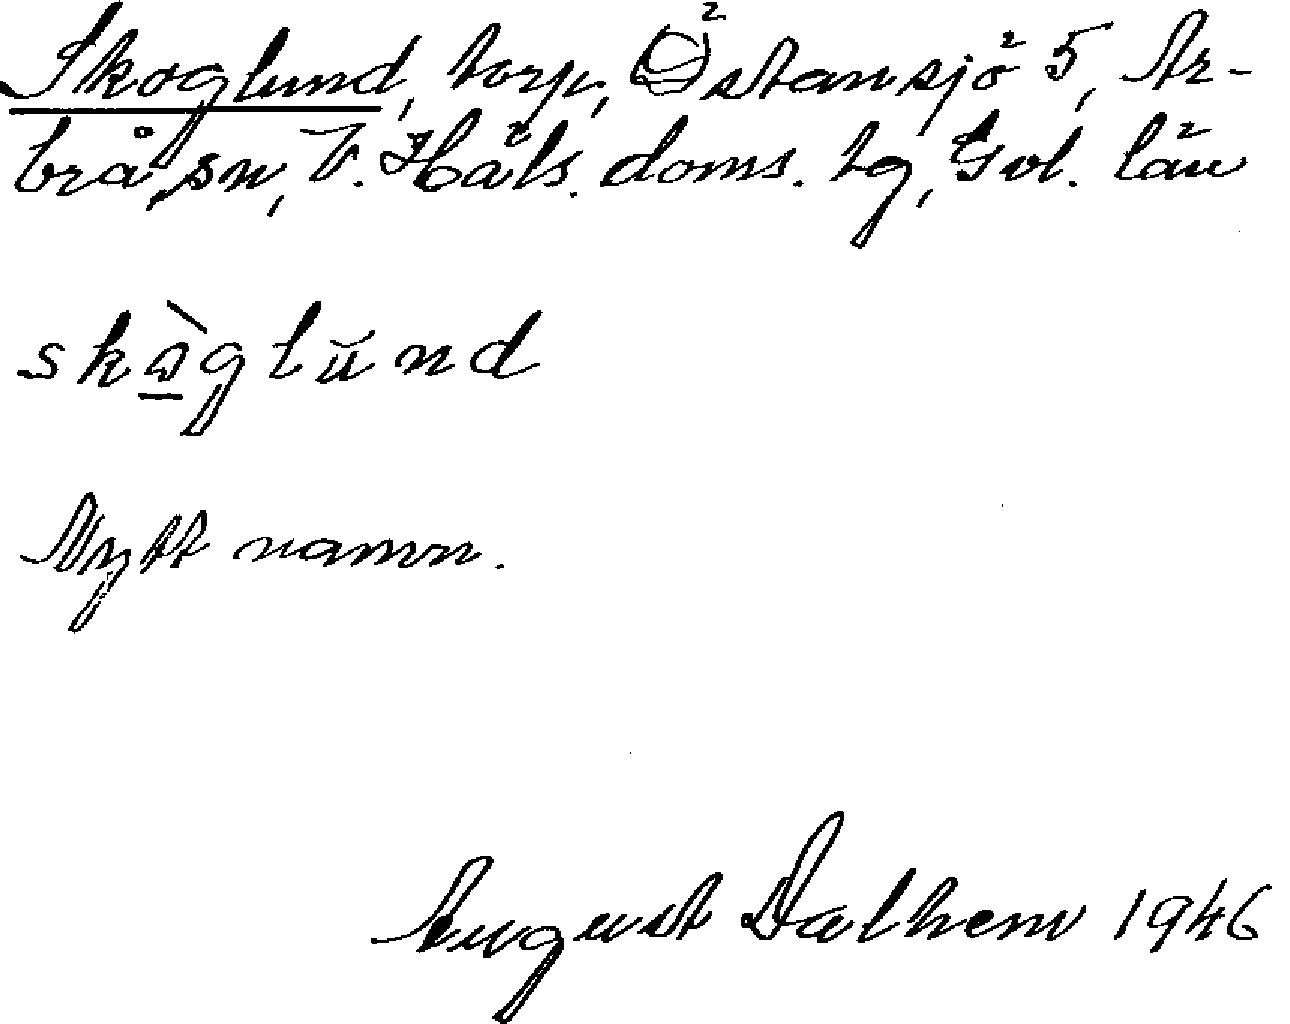 Skoglund, torp, Östansjö 5, Ar-
brå sn, V. Häls. doms. tg, Gvl. län
skò̠glŭnd
Nytt namn.
August Dalhem 1946